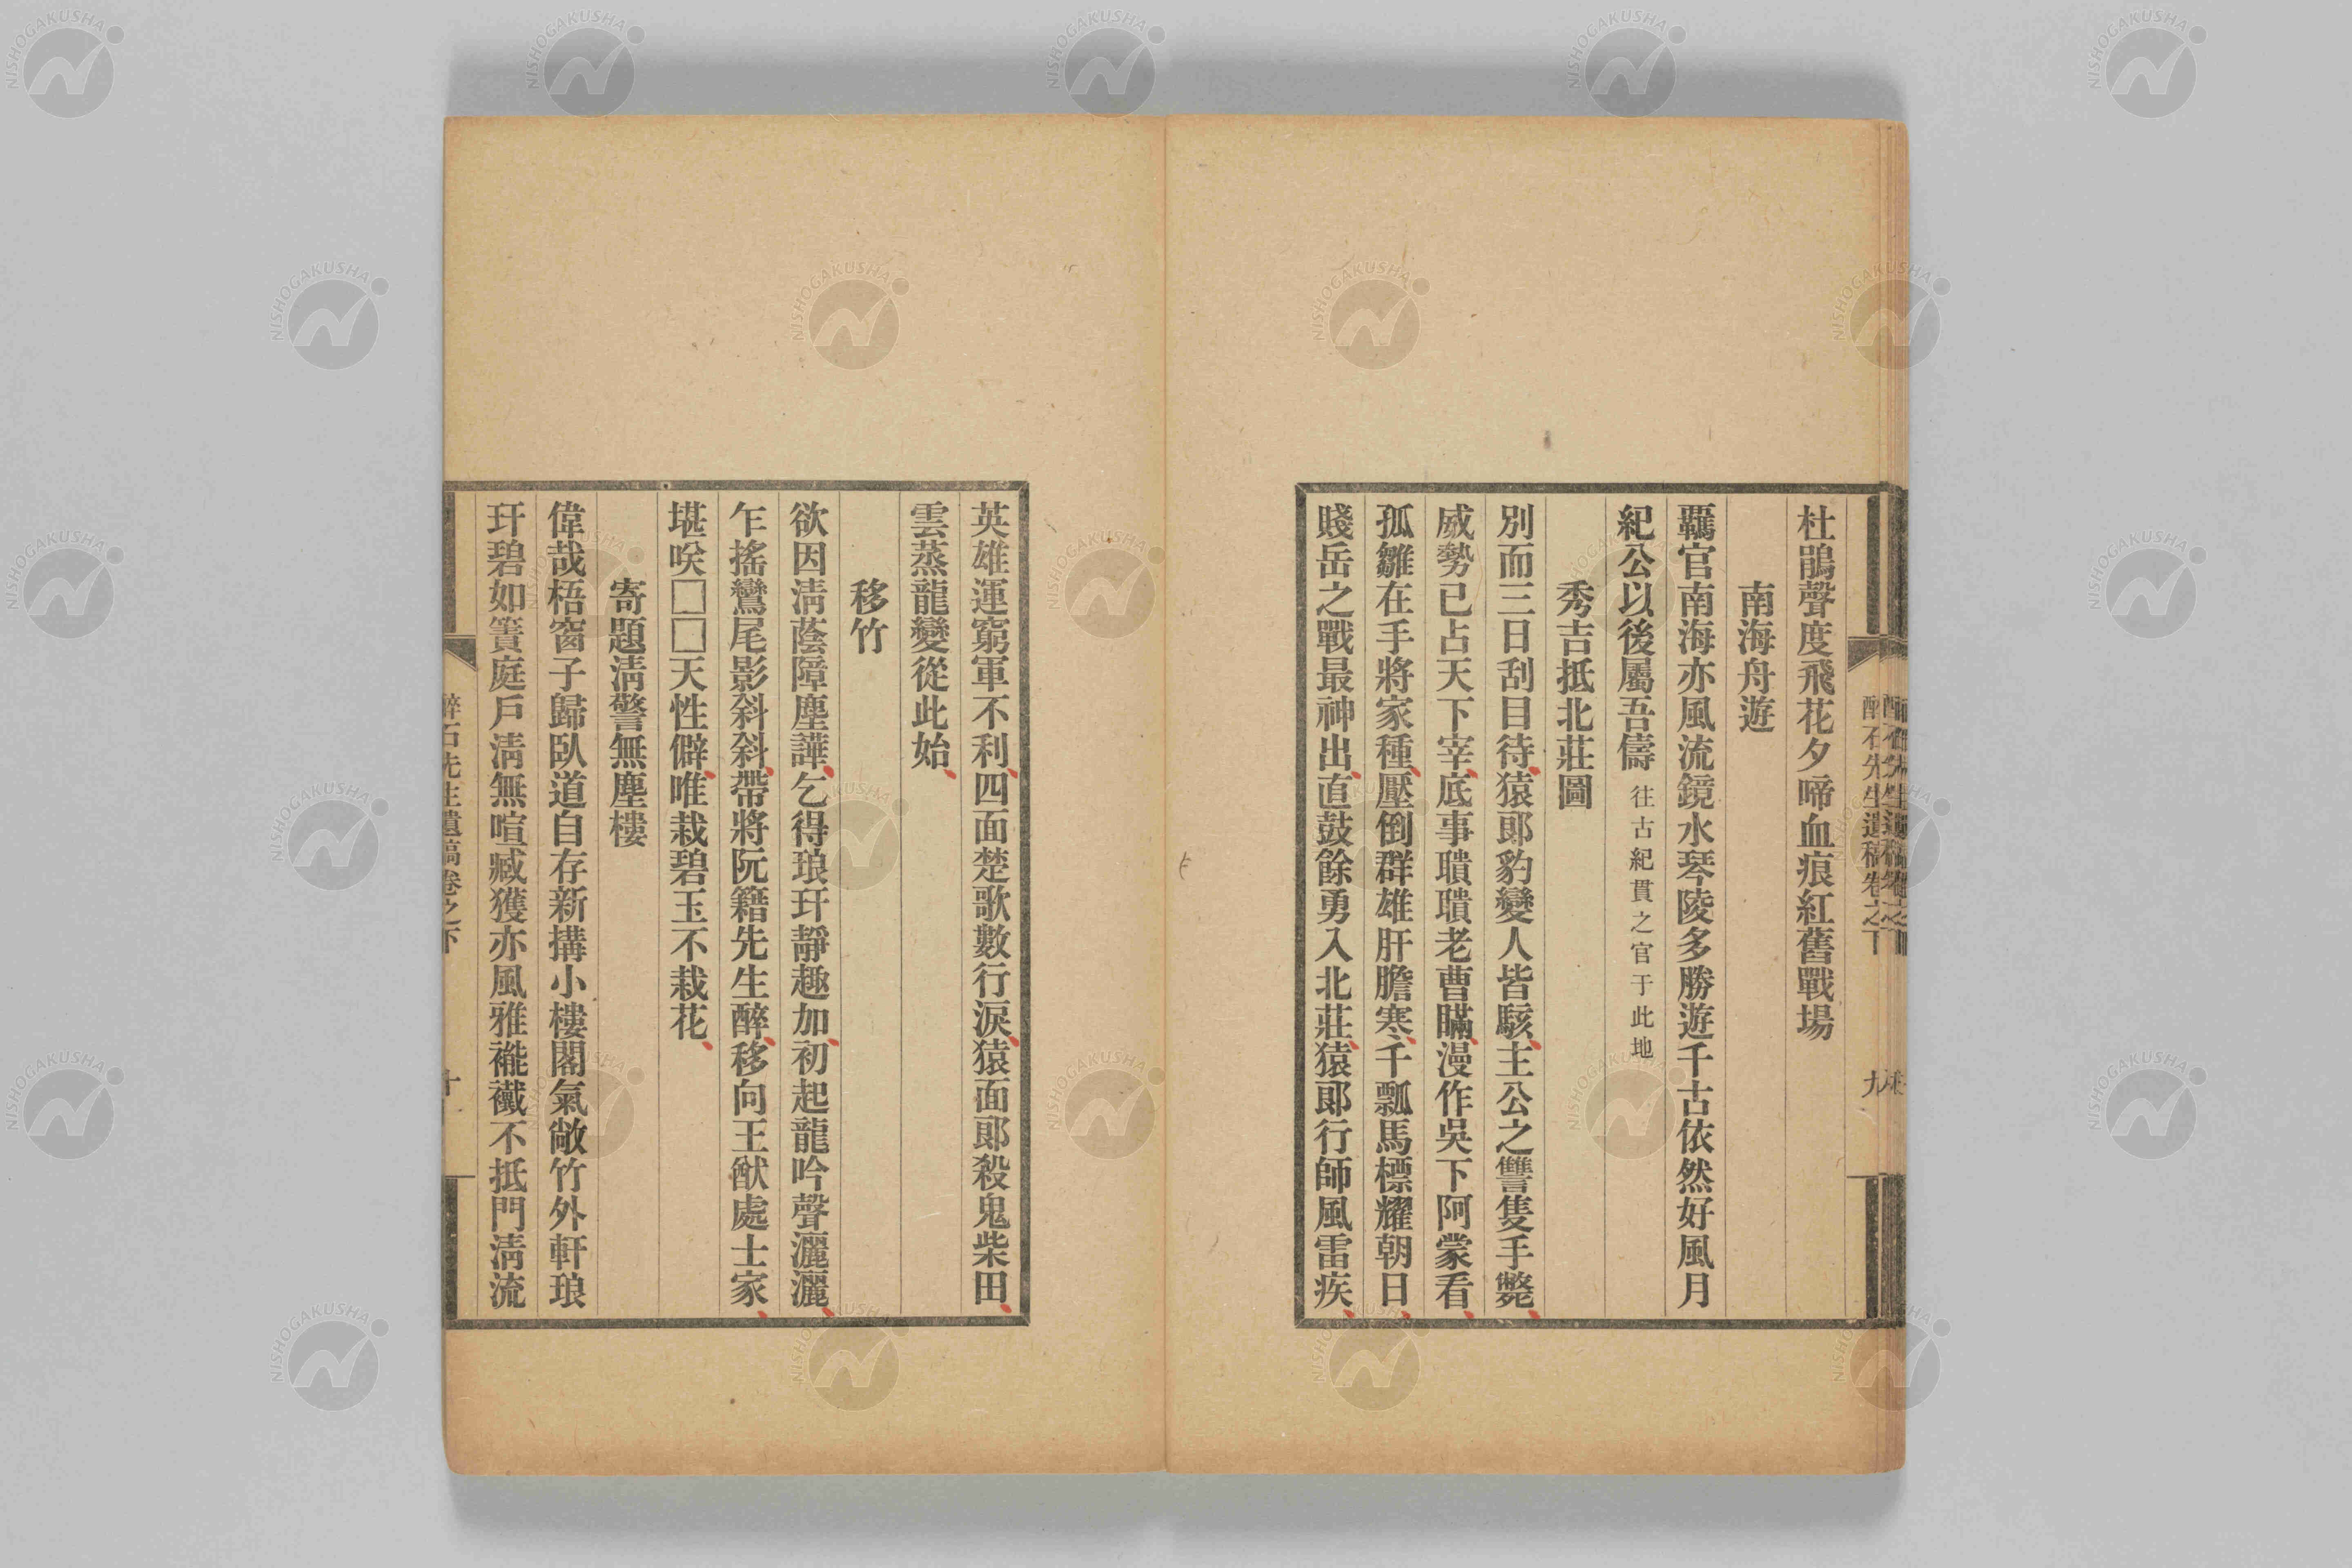 杜鵑聲度飛花夕啼血痕紅舊戰場
南海舟遊
羈官南海亦風流鏡水琴陵多勝遊千古依然好風月
紀公以後屬吾儔 往古紀貫之官于此地
秀吉抵北莊圖
別而三日刮目待猿郞豹變人皆駭主公之讐隻手斃
威勢已占天下宰底事聵聵老曹瞞漫作吳下阿蒙看
孤雛在手將家種壓倒群雄肝膽寒千瓢馬標耀朝日
賤岳之戰最神出直鼓餘勇入北莊猿郞行師風雷疾
醉石先生遺稿卷之下 九
英雄運窮軍不利四面楚歌數行淚猿面郞殺鬼柴田
雲蒸龍變從此始
移竹
欲因淸蔭障塵譁乞得琅玕靜趣加初起龍吟聲灑灑
乍搖鸞尾影斜斜帶將阮籍先生醉移向王猷處士家
堪咲□□天性僻唯栽碧玉不栽花
寄題淸警無塵樓
偉哉梧窗子歸臥道自存新搆小樓閣氣敞竹外軒琅
玕碧如簀庭戶淸無喧臧獲亦風雅褦襶不抵門淸流
醉石先生遺稿卷之下 十
NISHOGAKUSHA